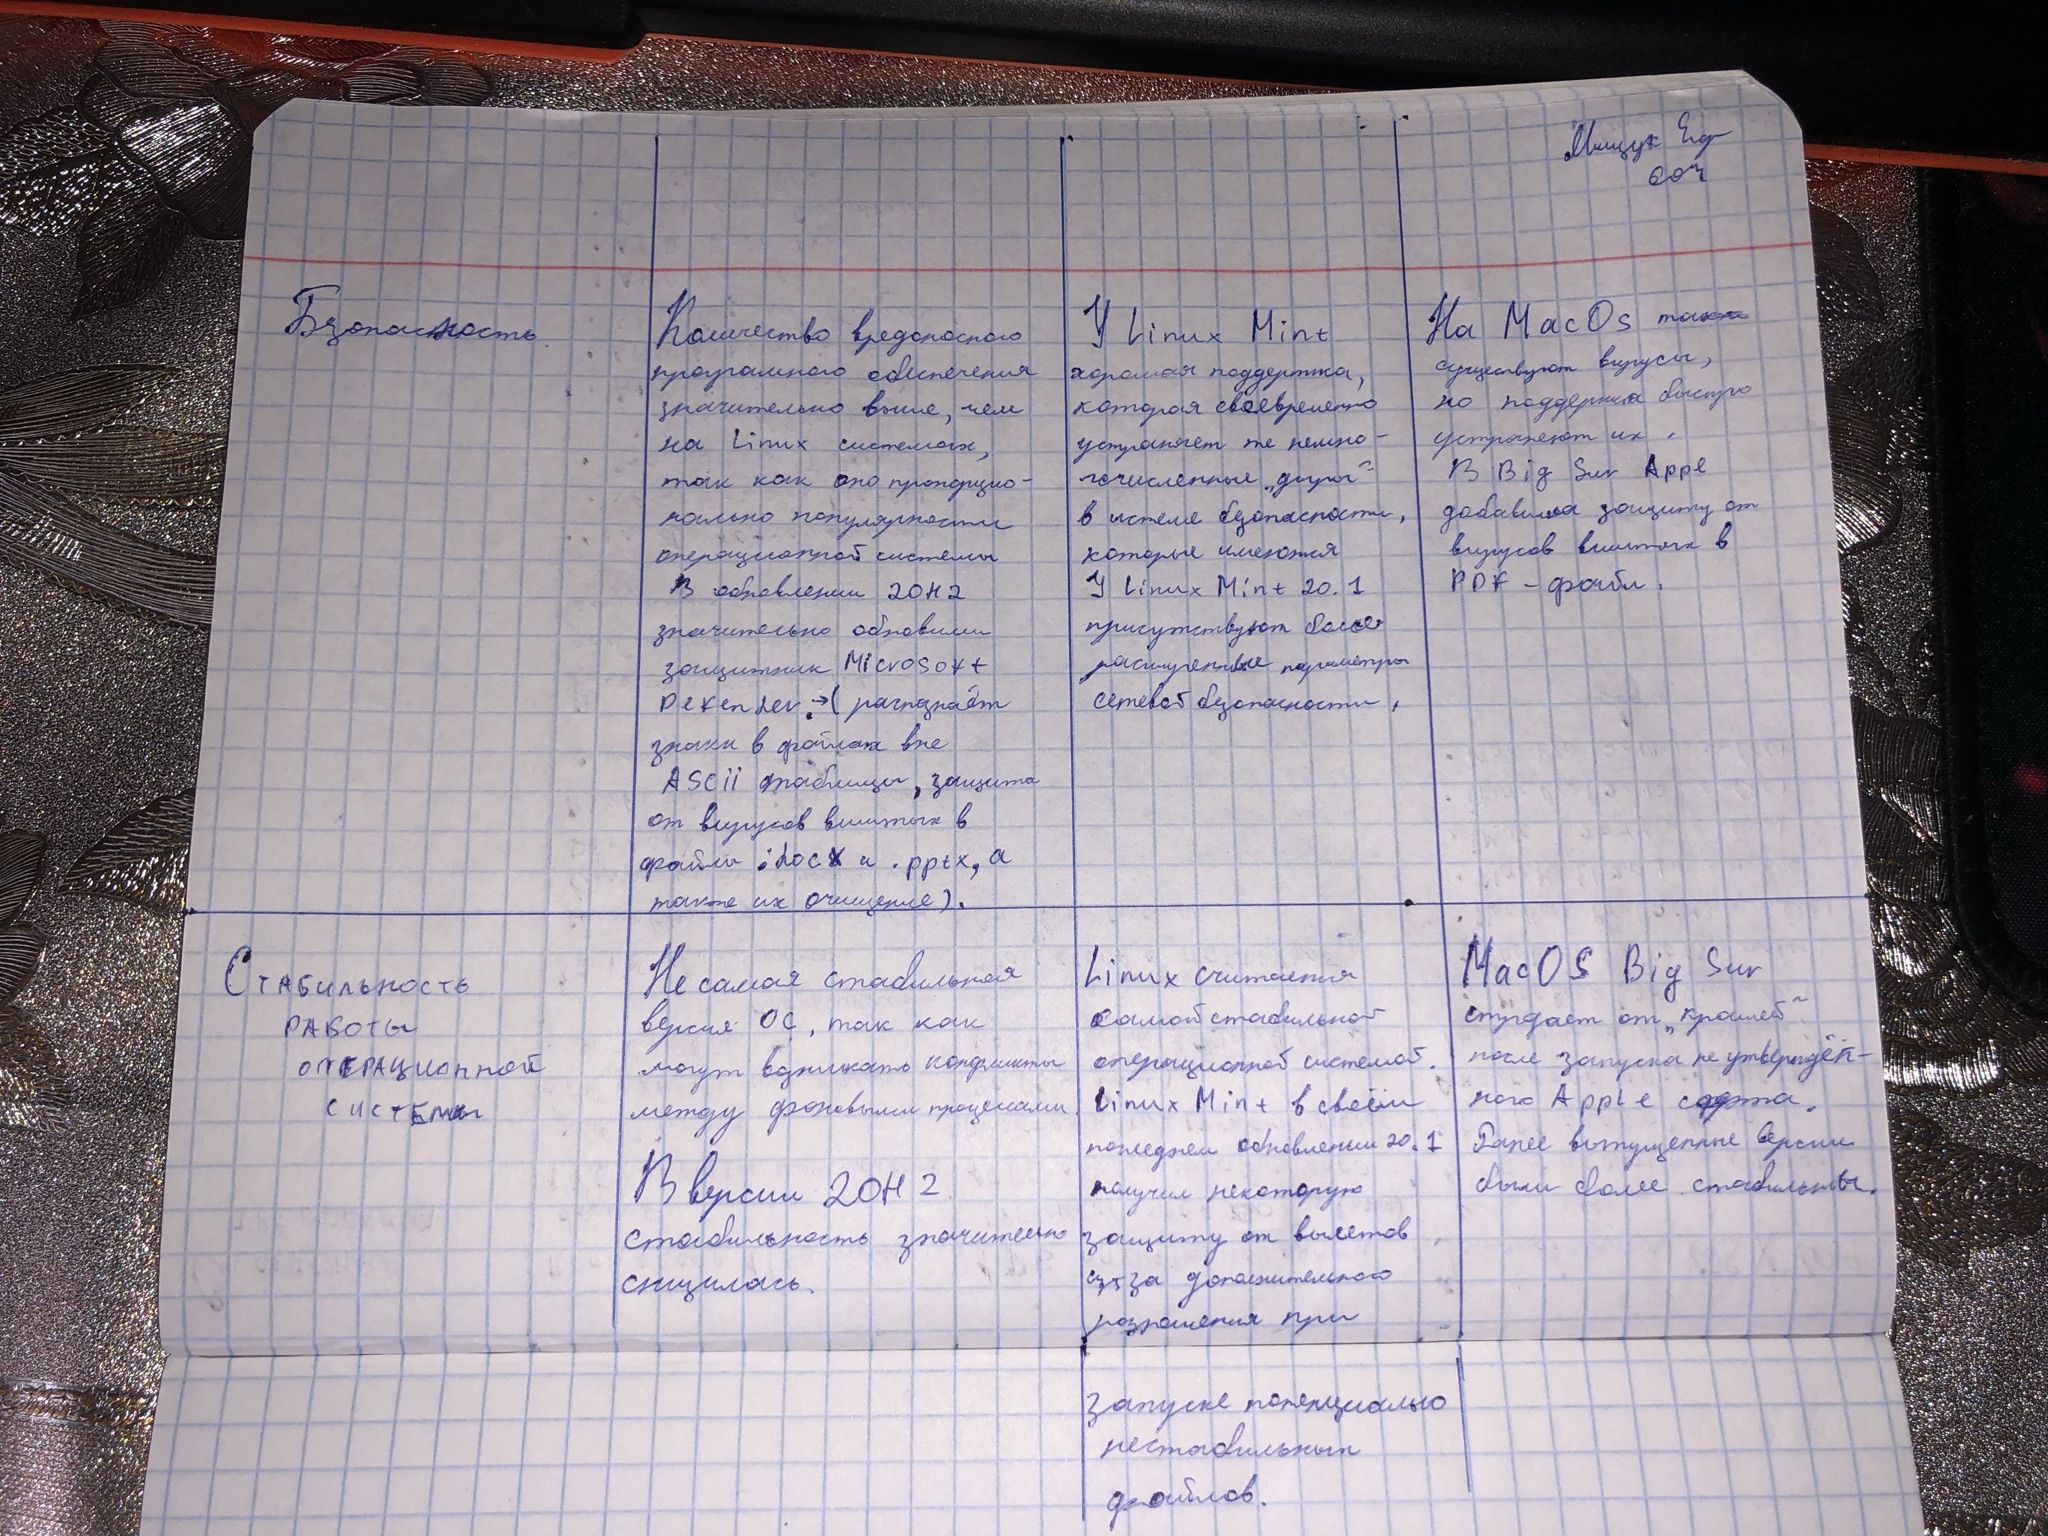 Мищук Ег
607
Бзопасность
Количество вредоносного
програмного обеспечения
значительно выше, чем
на Linux системах,
так как оно пропорцио-
нально популярности
операционной системы
В обновлении 20H2
значительно обновили
защитник Microsoft
Defender →( распознаёт
знаки в файлах вне
ASCii таблицы, защита
от вирусов вшитых в
файлы .docx и .pptx, а
также их очищение).
У Linux Mint
хорошая поддержка,
которая своевременно
устраняет те немно-
гочисленные „дыры"
в истеме безопасности,
которые имеются
У Linux Mint 20.1
присутствуют более
расширенные параметры
сетевой безопасности,
На MacOs также
существуют вирусы,
но поддержка быстро
устраняют их.
В Big Sur Appl
добавила защиту от
вирусов вшитых в
PDF - файл.
Стабильность
работы
операционной
системы
Не самая стабильная
версия ОС, так как
могут возникать конфликты
между фоновыми процессами.
В версии 20H2
стабильность значительно
снизилась.
Linux считается
самой стабильной
операционной системой.
Linux Mint в своём
последнем обновлении 20.1
получил некоторую
защиту от вылетов
из-за дополнительного
разрешения при
запуске потенциально
нестабильных
файлов.
MacOS Big Sur
страдает от „крашей"
после запуска не утверждён-
ного Apple софта.
Ранее выпущенные версии
были более стабильны.